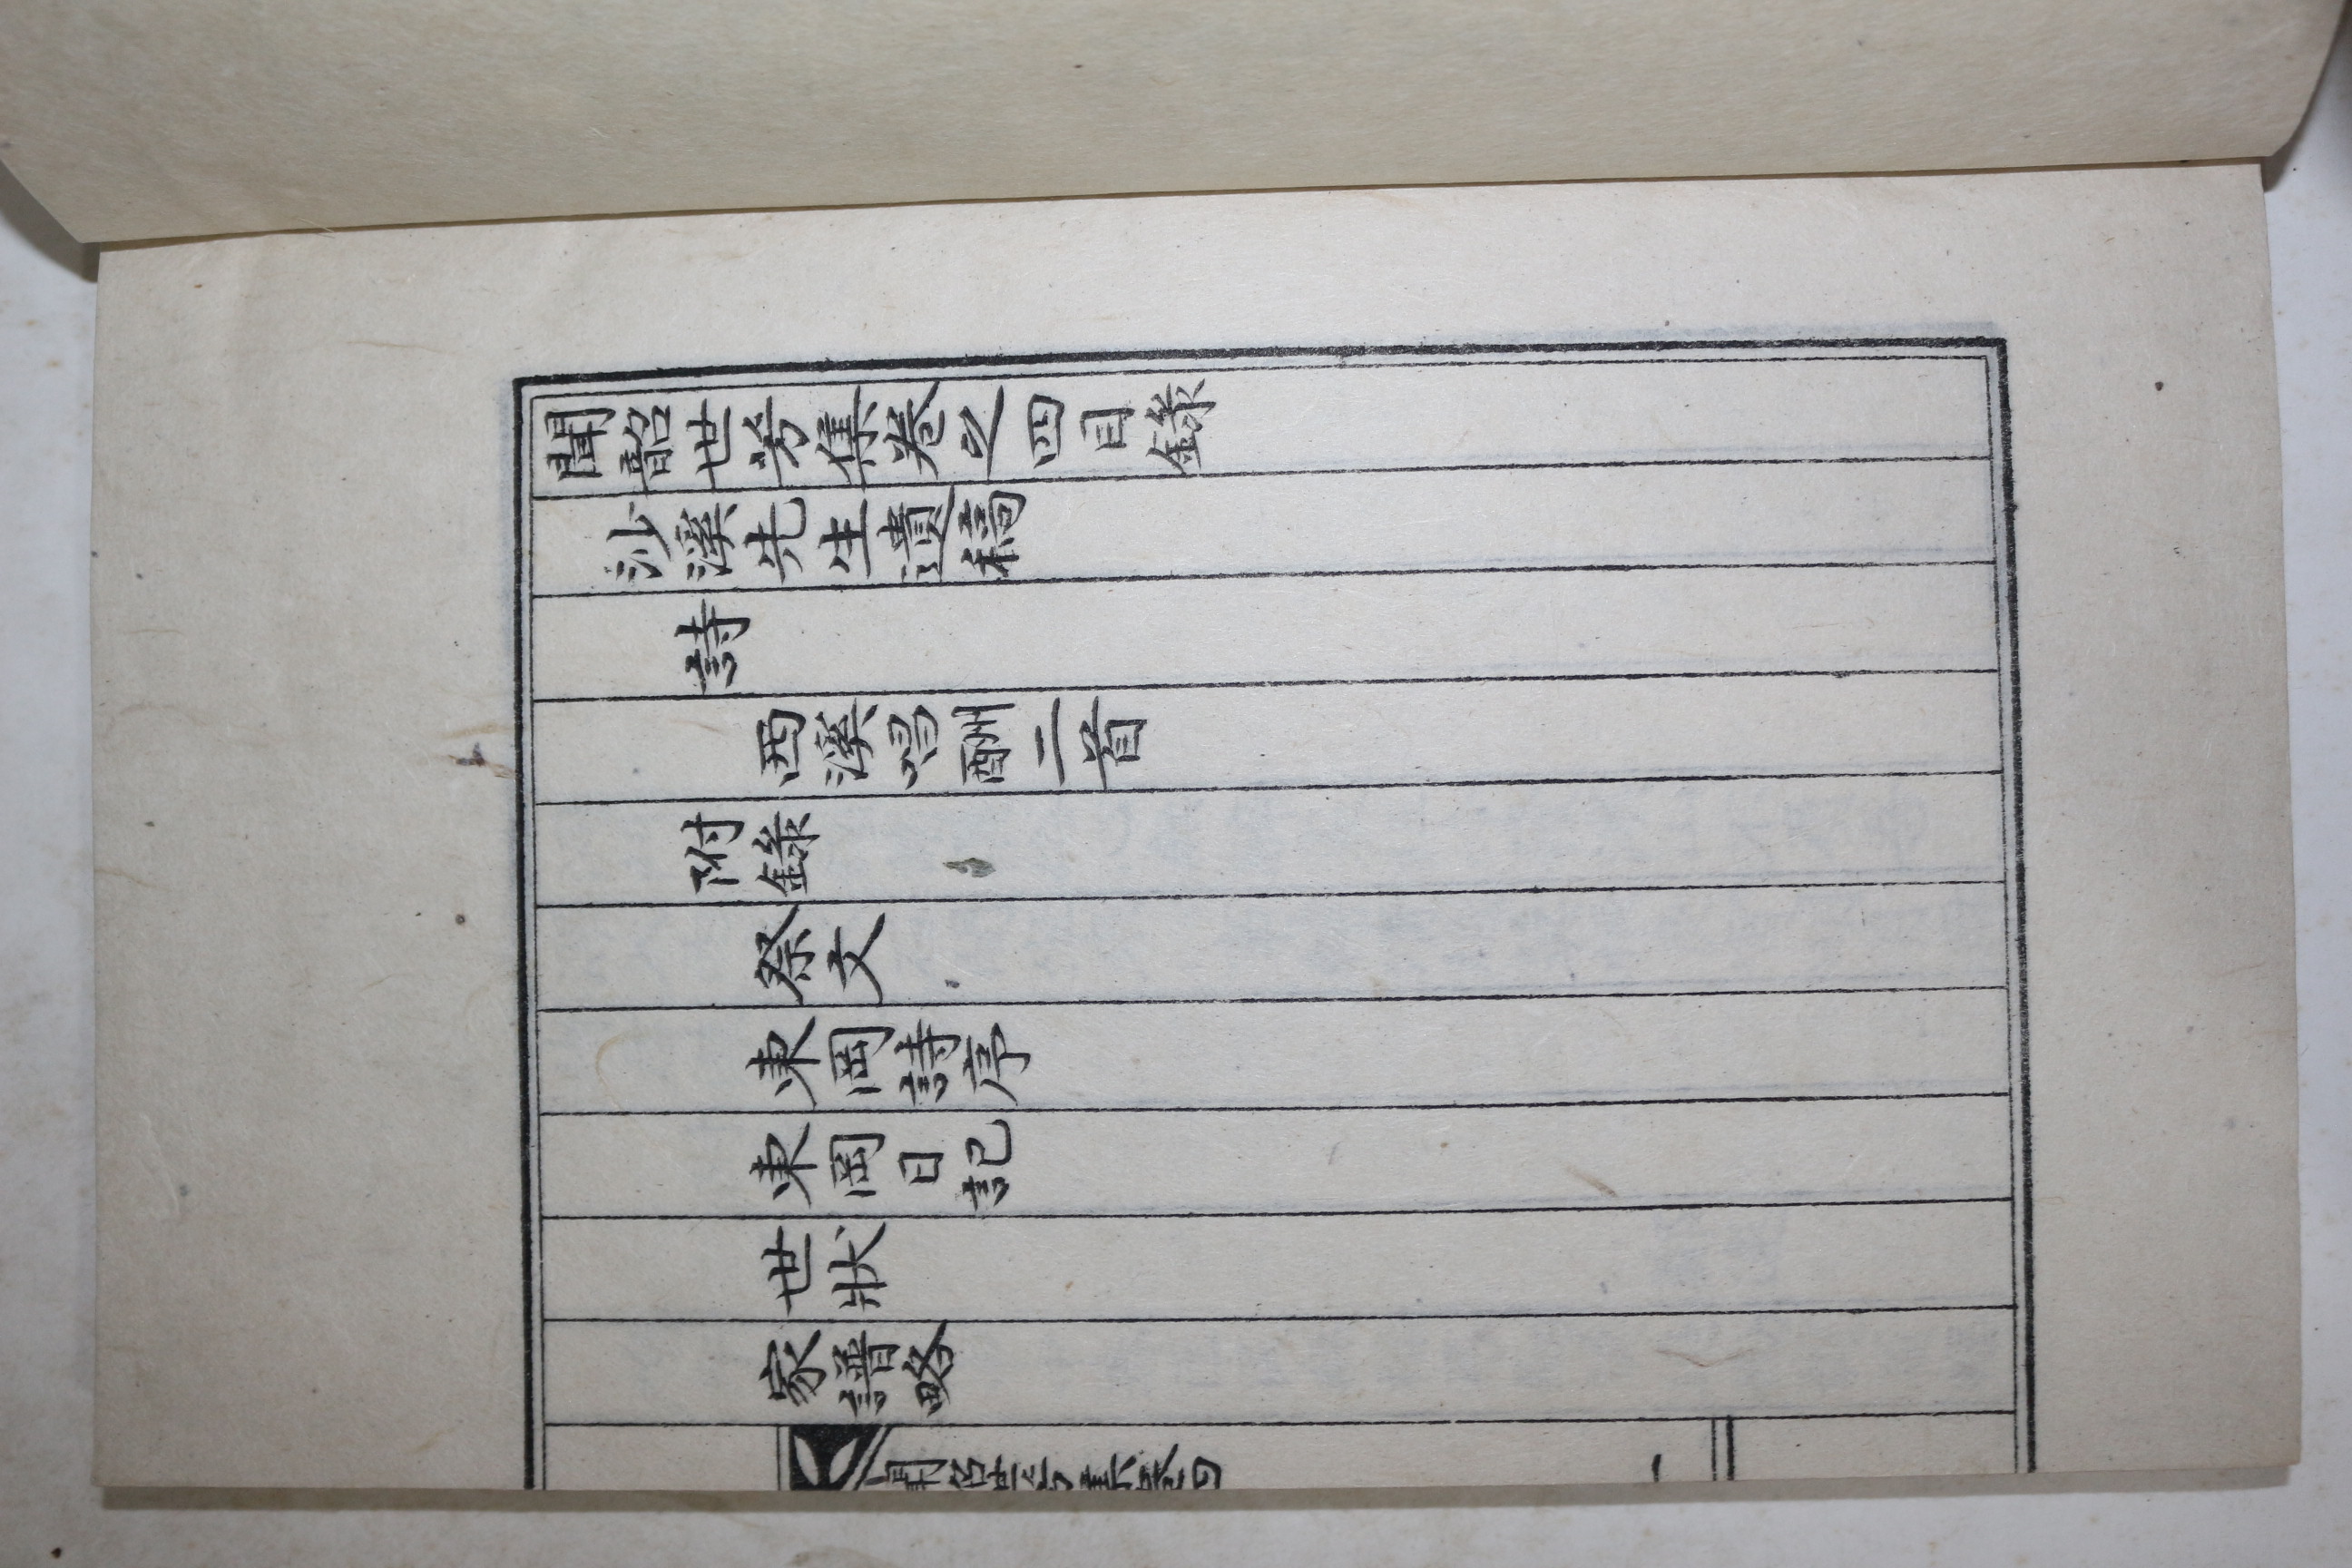 聞韶世芳集卷之四目錄
沙溪先生遺稿
詩
西溪唱酬二首
附錄
祭文
東岡詩序
東岡日記
世狀
家譜略
聞韶世芳集卷四
一